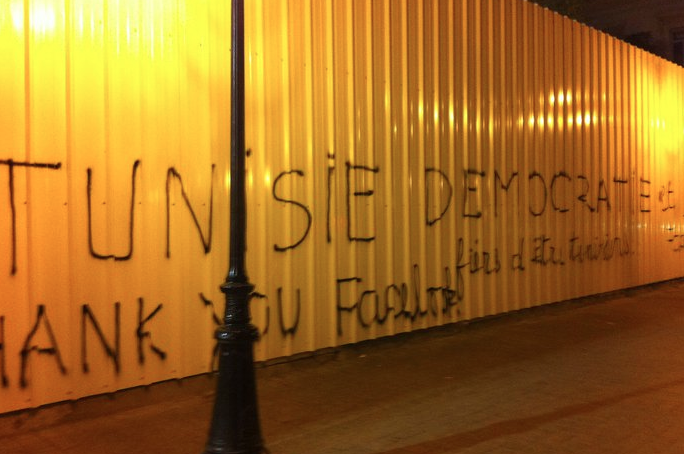 TUNISIE DEMOCRATIE et
fiers d'être tunisiens
THANK YOU Facebook